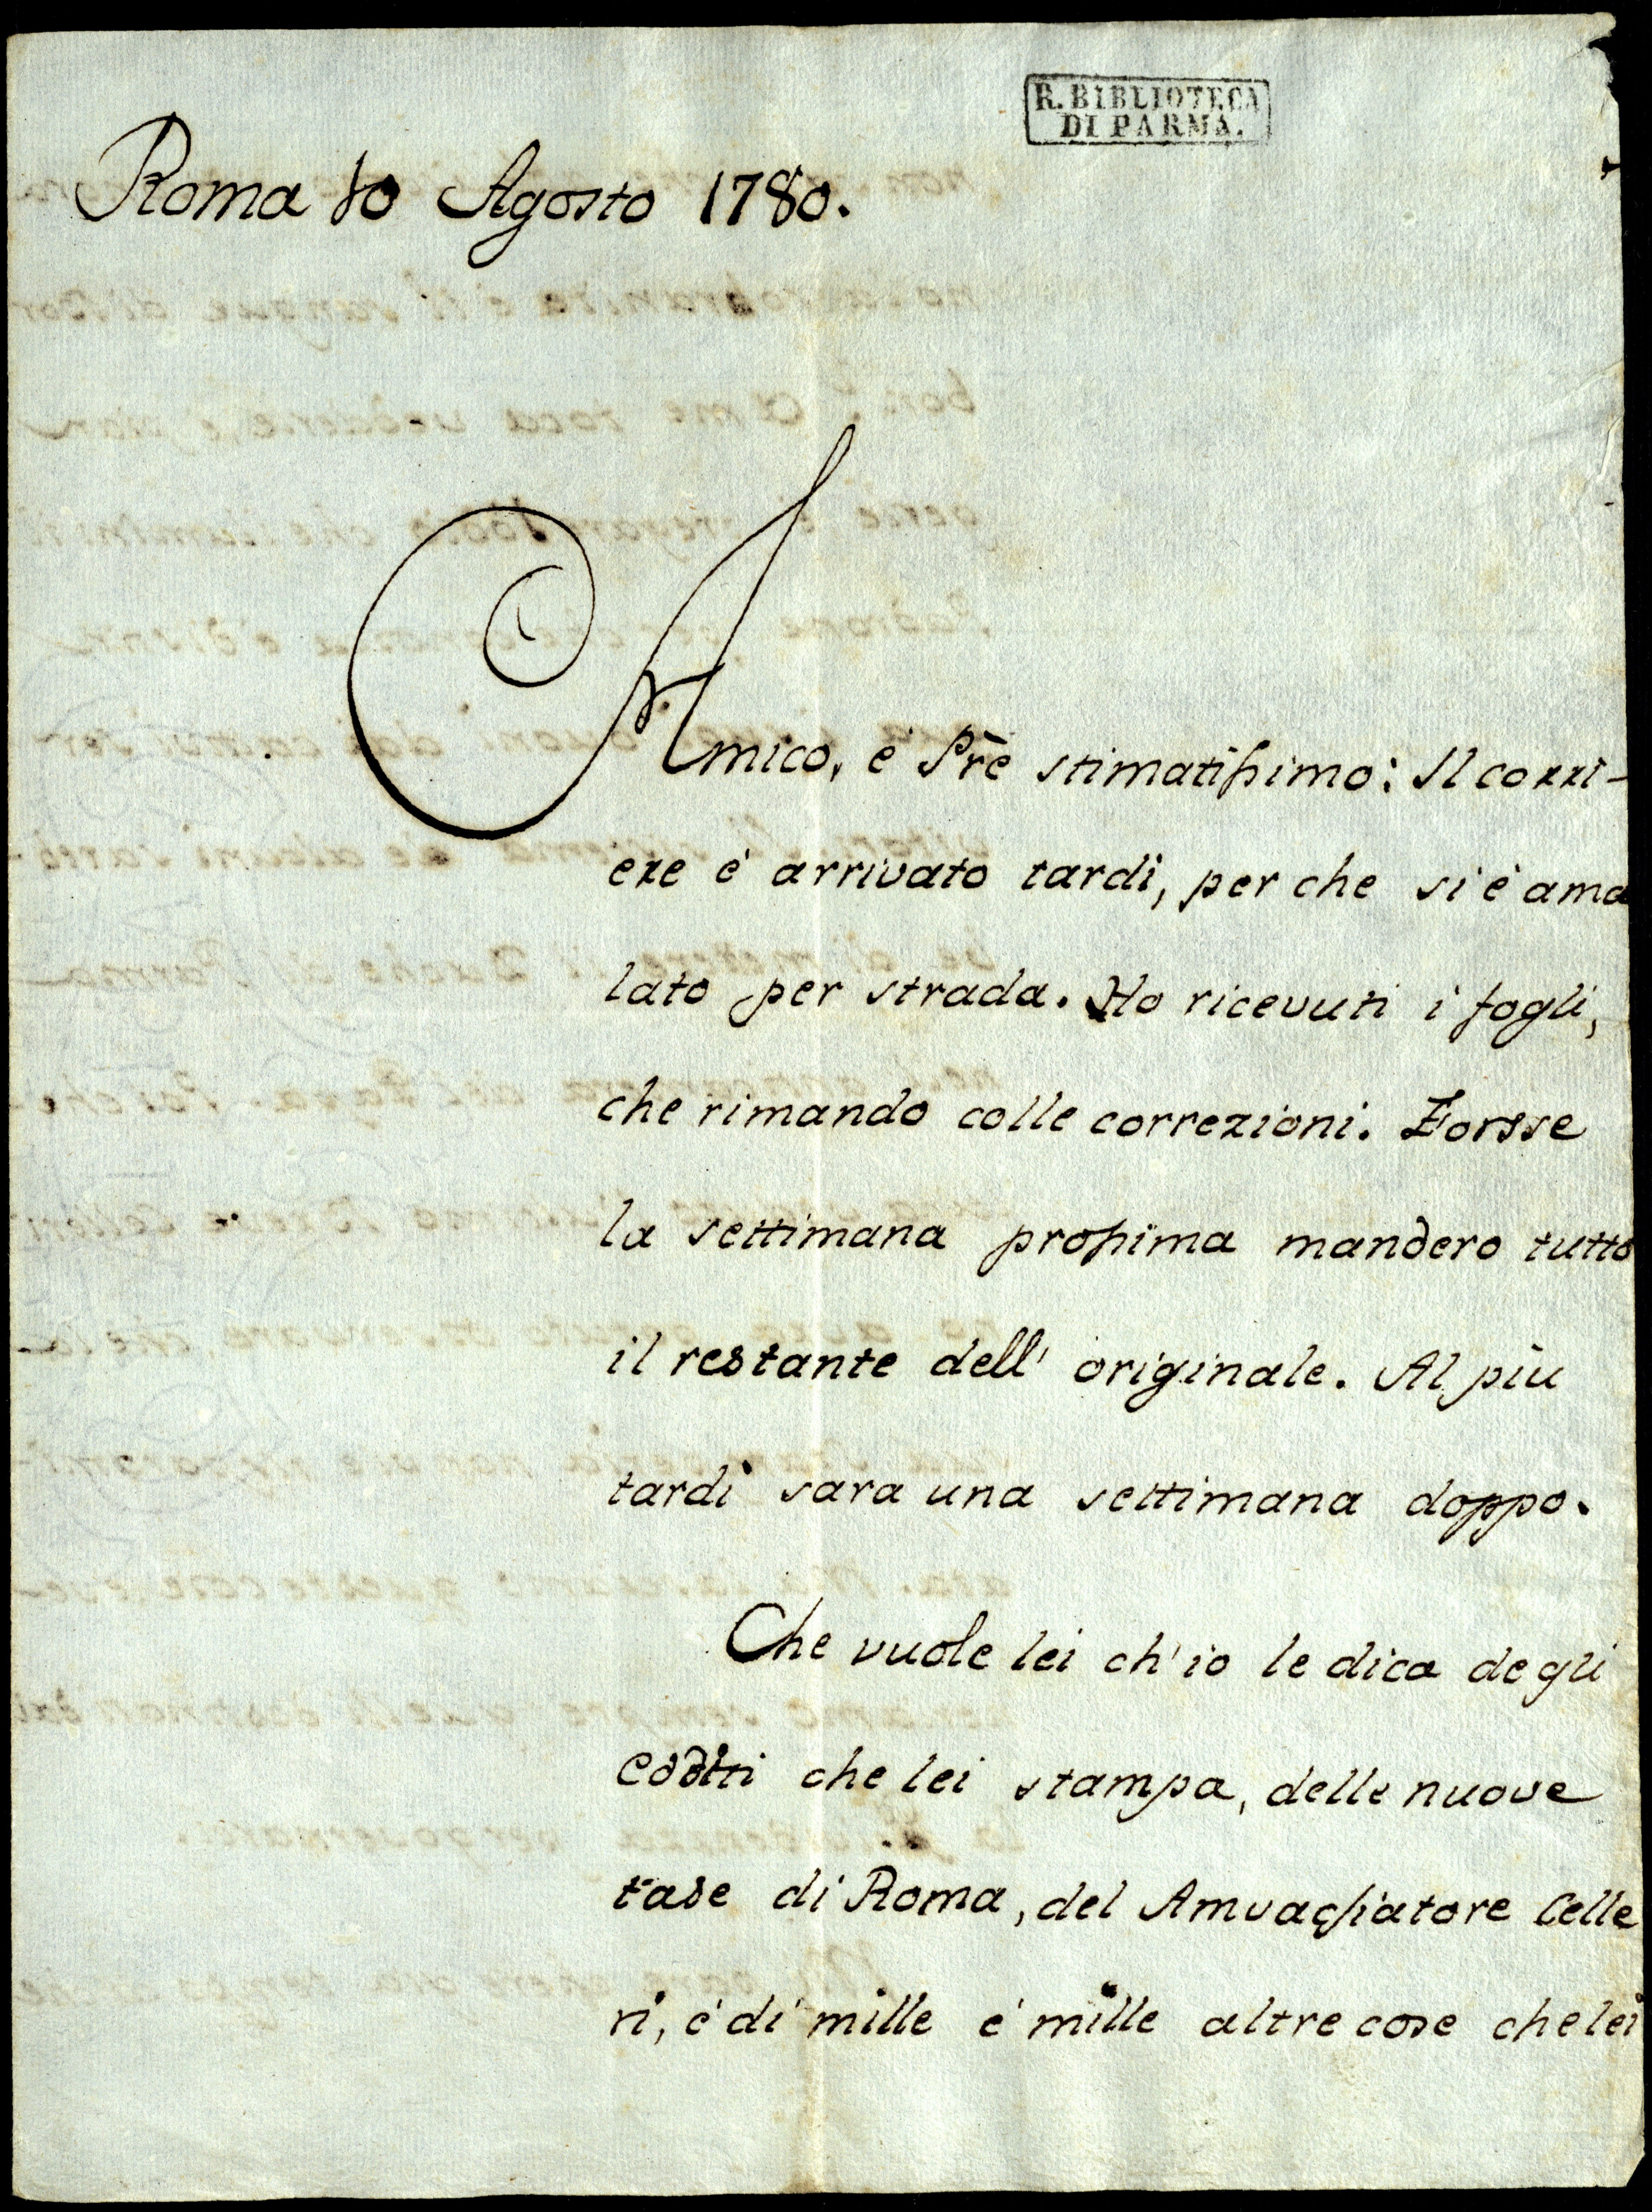 R. BIBLIOTECA
DI PARMA.
Roma 10 Agosto 1780.
Amico, e Prē stimatissimo: Il corri-
ere è arrivato tardi, per che si è ama
lato per strada. Ho ricevuti i fogli,
che rimando colle correzioni. Forsse
la settimana prossima mandero tutto
il restante dell' originale. Al più
tardi sara una settimana doppo.
Che vuole lei ch'io le dica degli
Editti che lei stampa, delle nuove
tase di Roma, del Amvasciatore Celle
ri, è di mille è mille altre cose che lei